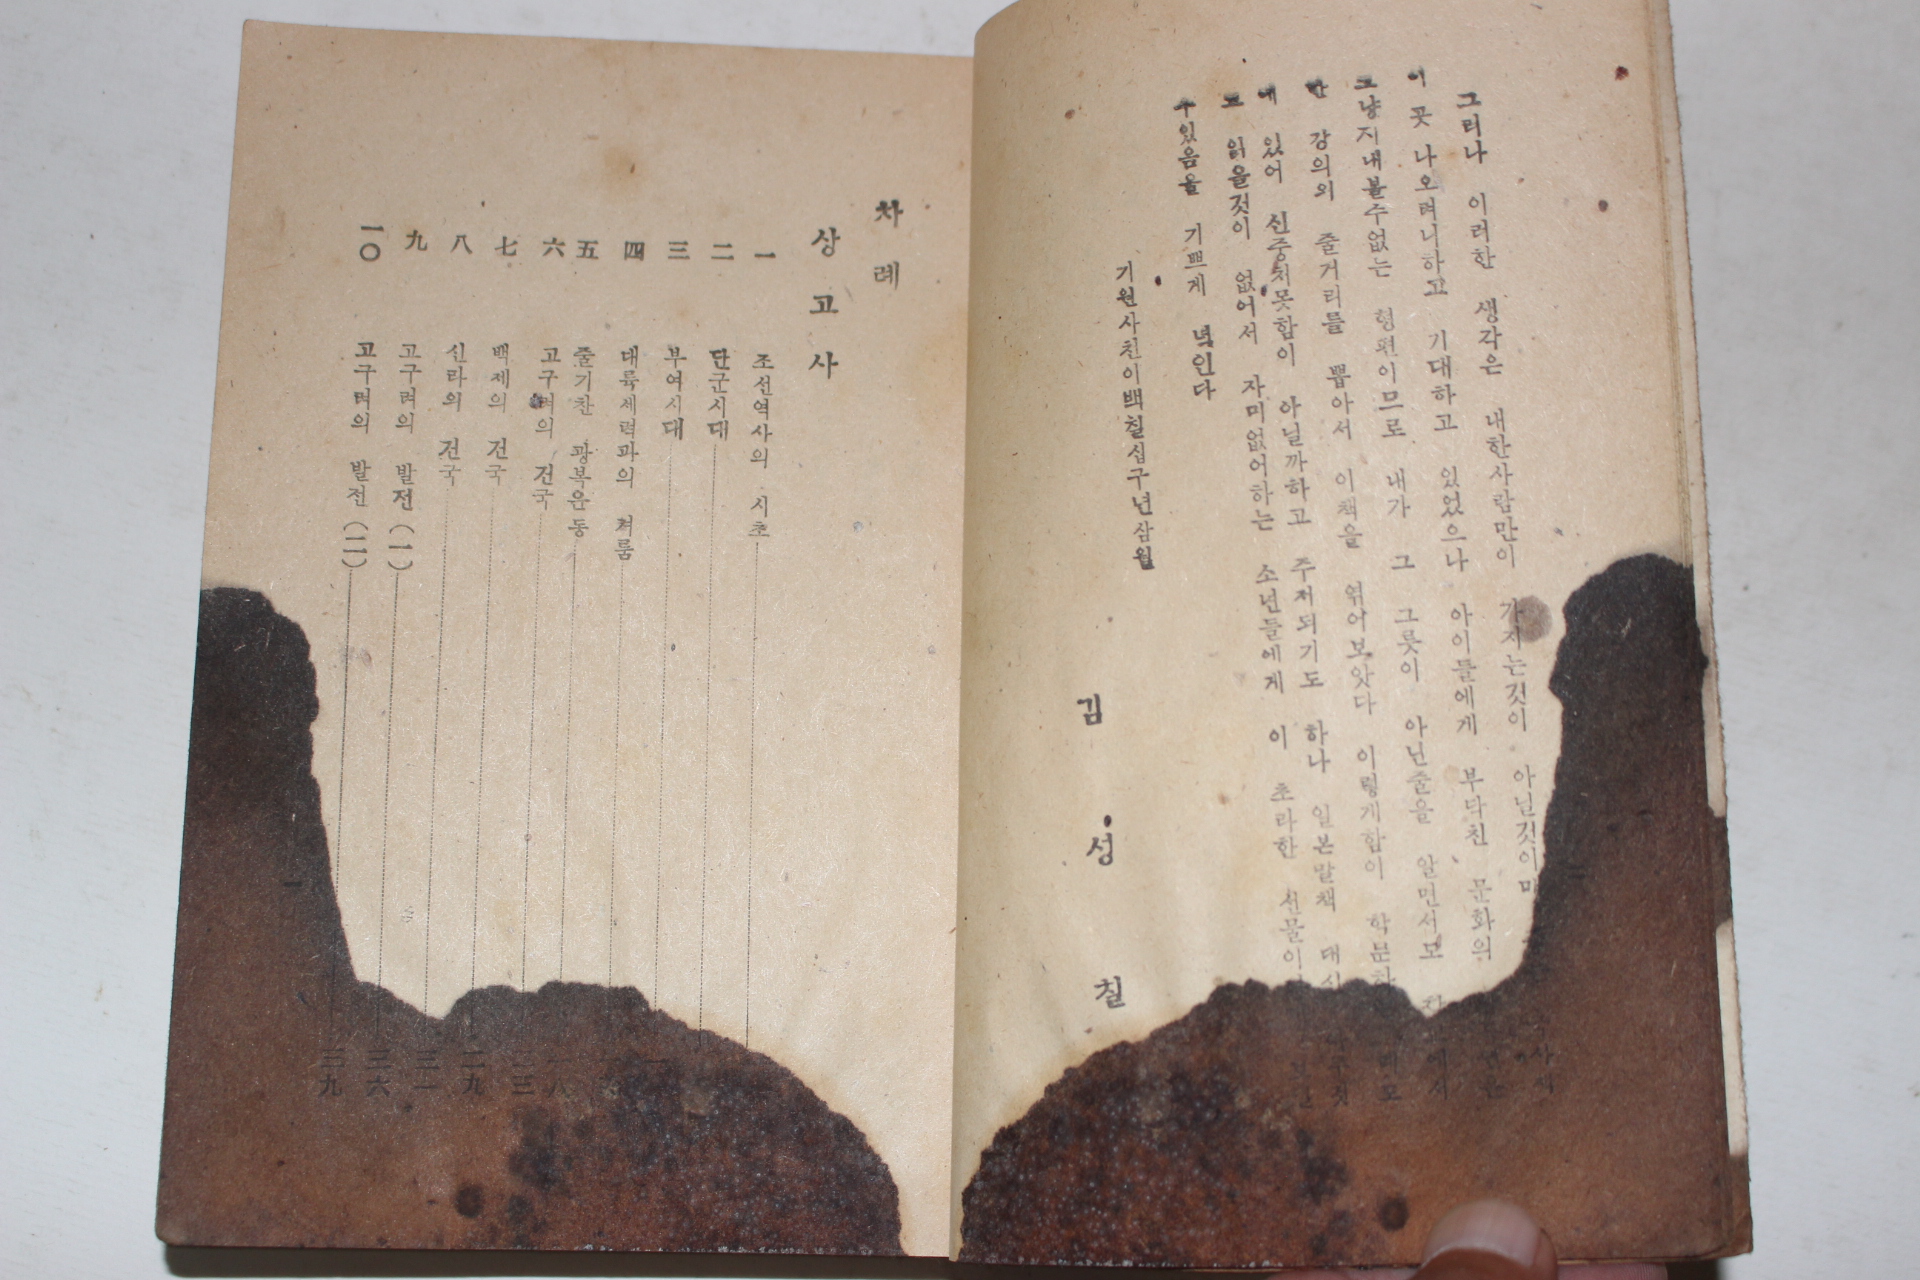 그러나 이러한 생각은 내한사람만이 가지는것이 아닌것이마 사려
이 곳 나오려니하고 기대하고 있었으나 아이들에게 부닥친 문화의
그냥지내볼수없는 형편이므로 내가 그 그릇이 아닌줄을 알면서모
한 강의의 줄거리를 뽑아서 이책을 엮어보앗다 이렇게함이 학문하
에 있어 신중치못함이 아닐까하고 주저되기도 하나 일본말책 대신
고 읽을것이 없어서 자미없어하는 소년들에게 이 초라한 선물이
수있음을 기쁘게 녁인다
기원사천이백칠십구년삼월
김성칠
차례
상고사
一 조선역사의 시초
二 단군시대
三 부여시대
四 대륙세력과의 겨룸
五 줄기찬 광복운동
六 고구려의 건국
七 백제의 건국 二九
八 신라의 건국 三一
九 고구려의 발전(一) 三六
一〇 고구려의 발전(二) 三九
一